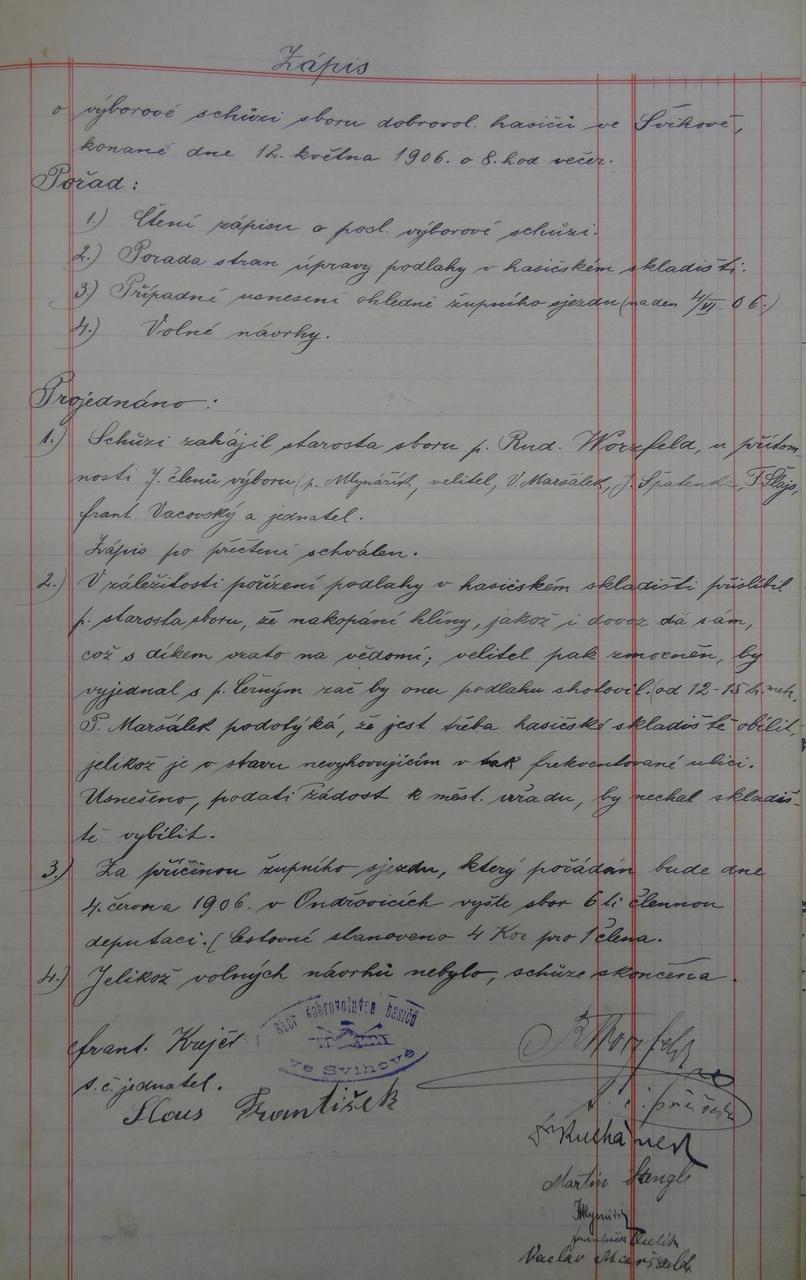 Zápis
o výborové schůzi sboru dobrovol. hasičů ve Svihově,
konané dne 12. května 1906. o 8. hod večer.
Pořad:
1.) Čtení zápisu o posl. výborové schůzi.
2.) Porada stran úpravy podlahy v hasičském skladišti.
3.) Případné usnesení ohledně župního sjezdu (na den 4/VI. 06.)
4.) Volné návrhy.
Projednáno:
1.) Schůzi zahájil starosta sboru p. Rud. Worzfeld, u přítom-
nosti 7. členů výboru (p. Mlynářík, velitel, V. Maršálek, J. Špatenka,
frant. Vacovský a jednatel.
Zápis po přečtení schválen.
2.) V záležitosti pořízení podlahy v hasičském skladišti přislíbil
p. starosta sboru, že nakopání hlíny, jakož i dovoz dá sám,
což s díkem vzato na vědomí; velitel pak zmocněn, by
vyjednal s p. Černým zač by onu podlahu shotovil. (od 12-15
P. Maršálek podotýká, že jest třeba hasičské skladiště obílit,
jelikož je v stavu nevyhovujícím v tak frekventované ulici.
Usnešeno, podati žádost k měst. úřadu, by nechal skladiš-
tě vybílit.
3.) Za příčinou župního sjezdu, který pořádán bude dne
4. června 1906. v Ondřovicích vyšle sbor 6 ti člennou
deputaci. (Cestovné stanoveno 4 Kor pro 1 člena.
4.) Jelikož volných návrhů nebylo, schůze skončena.
frant. Krejčí
s. č. jednatel.
Sbor dobrovolných hasičů
ve Svihově
RWorzfeld
Slous František
Martin Stengl
Vaclav Maršálek